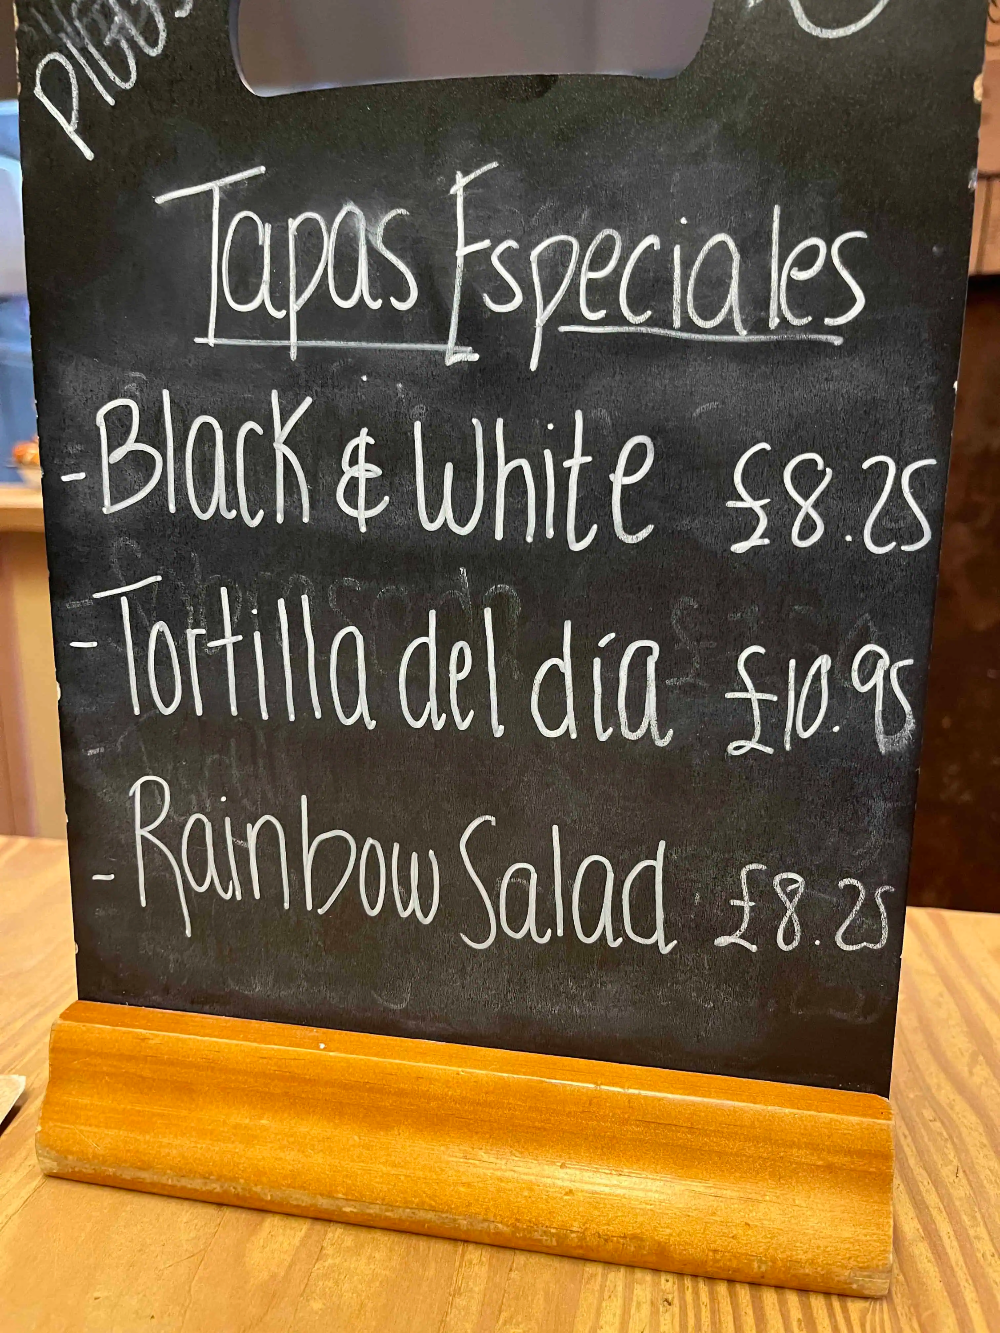 Tapas Especiales
- Black & White £8.25
- Tortilla del día £10.95
- Rainbow Salad £8.25